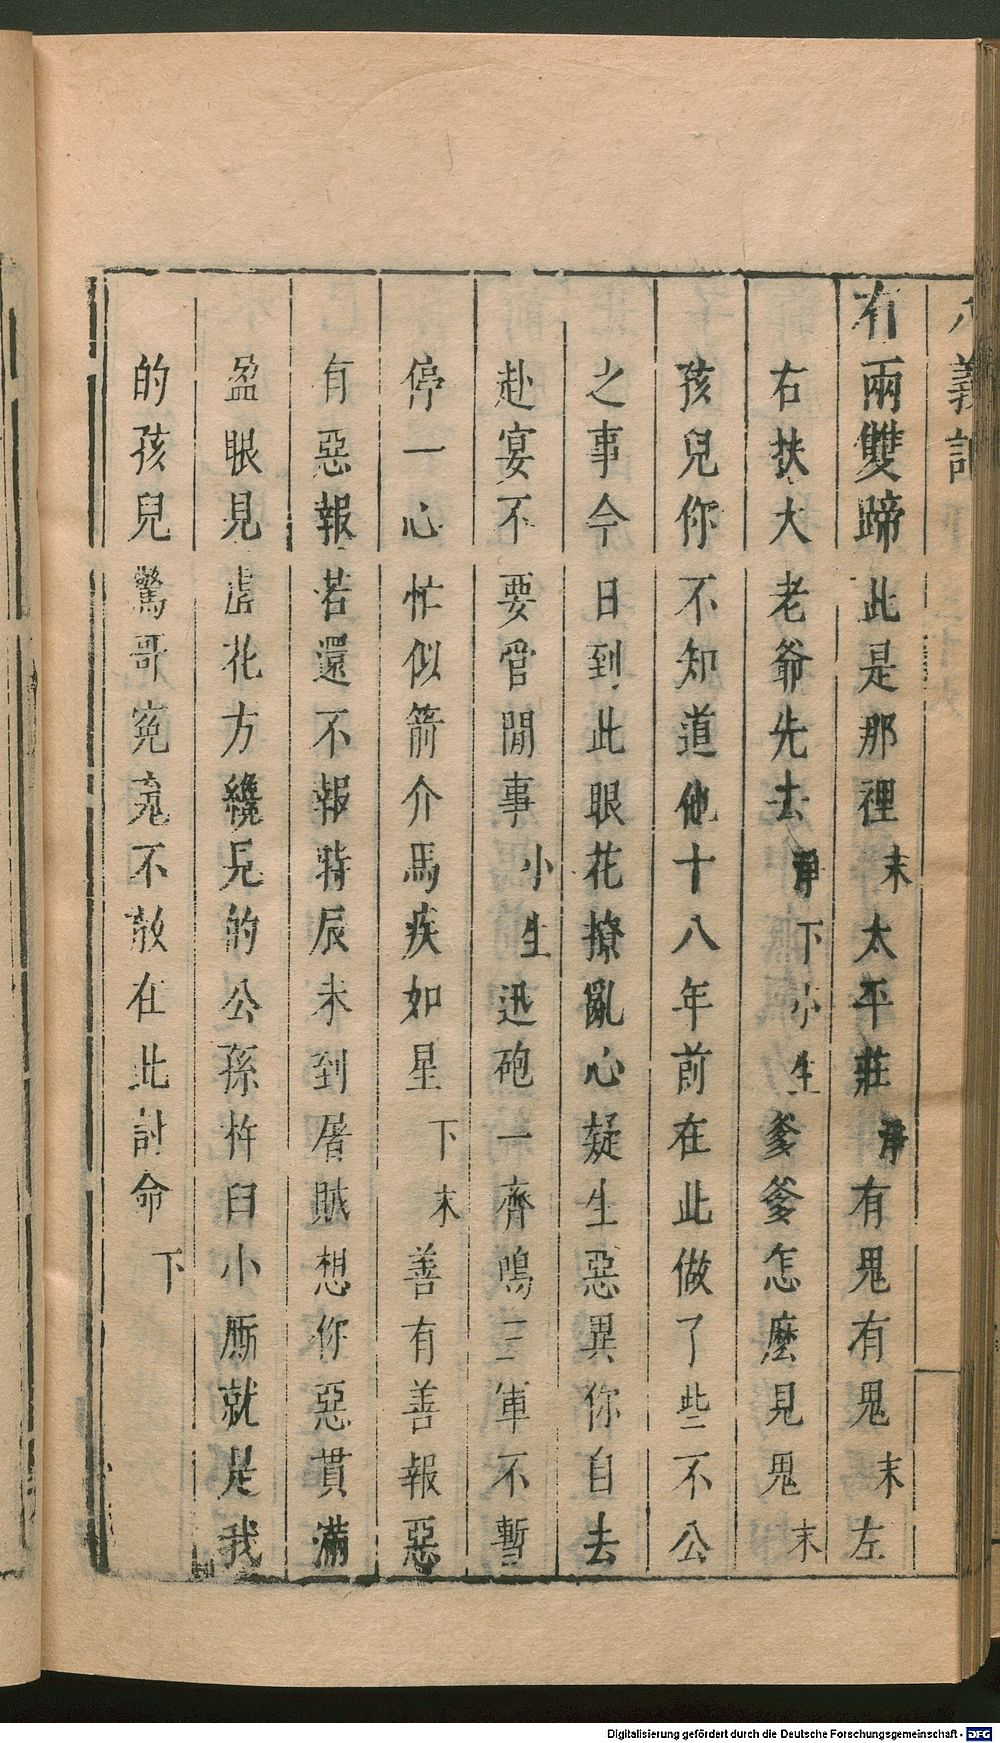 八義記
有兩雙蹄此是那裡末太平莊淨有鬼有鬼末左
右扶大老爺先去淨下小生爹爹怎麽見鬼末
孩兒你不知道他十八年前在此做了些不公
之事今日到此眼花撩亂心疑生惡異你自去
赴宴不要管閒事小生迅砲一齊鳴三軍不暫
停一心忙似箭介馬疾如星下末善有善報惡
有惡報若還不報時辰未到屠賊想你惡貫滿
盈眼見虗花方纔見的公孫杵臼小厮就是我
的孩兒驚哥寃鬼不散在此討命下
Digitalisierung gefördert durch die Deutsche Forschungsgemeinschaft - DFG